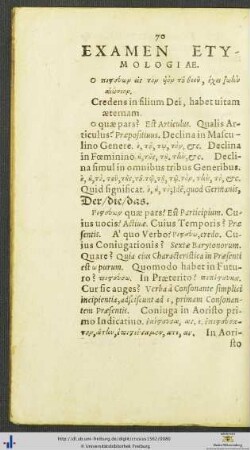 70
EXAMEN ETY-
MOLOGIAE.
Ο πιστεύων εἰς τὸν ὑὸν τοῦ θεοῦ, ἔχει ζωὴν
αἰώνιον.
Credens in filium Dei, habet uitam
æternam.
Ο quæ pars? Est Articulus. Qualis Ar-
ticulus? Præpositiuus. Declina in Mascu-
lino Genere. ὁ, τοῦ, τῷ, τὸν, &c. Declina
in Fœminino. ἡ, τῆς, τῇ, τὴν, &c. Decli-
na simul in omnibus tribus Generibus.
Quid significat. ὁ, ἡ, τὸ, Idē, quod Germanis,
Der/die/das.
Πιστεύων quæ pars? Est Participium. Cu-
ius uocis? Actiuæ. Cuius Temporis? Præ
sentis. A' quo Verbo? Πιστεύω, credo. Cu-
ius Coniugationis? Sextæ Barytonorum.
Quare? Quia eius Characteristica in Præsenti
est ω purum. Quomodo habet in Futu-
ro? πιστεύσω. In Præterito? πεπίστευκα.
Cur sic auges? Verba à Consonante simplici
incipientia, adsciscunt ad ε, primam Consonan-
tem Præsentis. Coniuga in Aoristo pri-
mo Indicatiuo. ἐπίστευσα, ας, ε,
In Aori-
sto
http://dl.ub.uni-freiburg.de/diglit/crusius1562/0080
© Universitätsbibliothek Freiburg